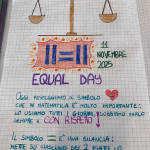 11 = 11
11
NOVEMBRE
2025
EQUAL DAY
OGGI FESTEGGIAMO IL SIMBOLO
CHE IN MATEMATICA È MOLTO IMPORTANTE:
LO USIAMO TUTTI I GIORNI, DOBBIAMO FARLO
SEMPRE CON RISPETTO!
IL SIMBOLO = È UNA BILANCIA:
METTE SU CIASCUNO DEI 2 PIATTI LO